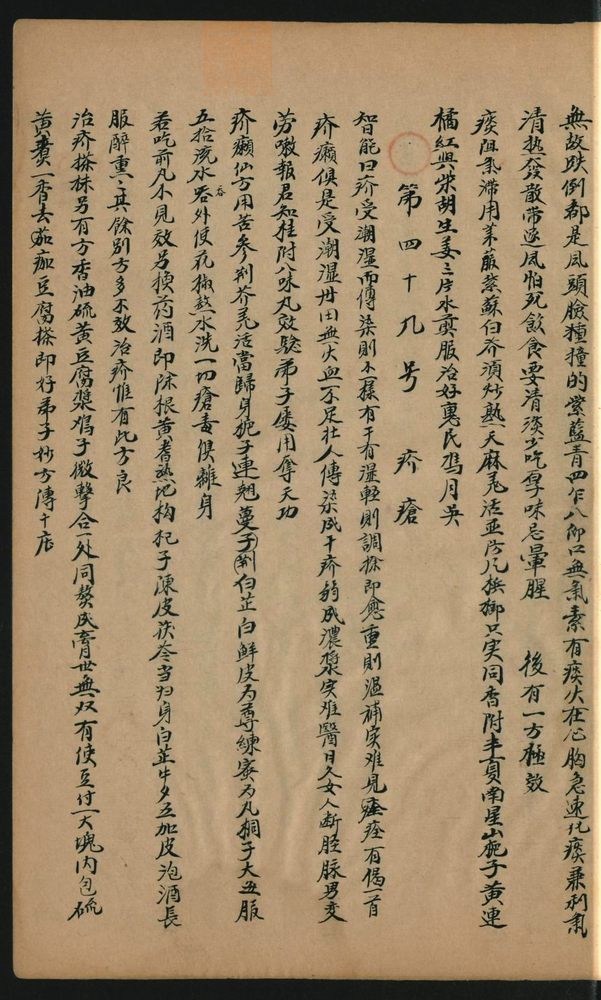 無故跌倒都是風頭臉種撞的紫藍青四乍八仰口無氣素有痰火在心胸急速化痰兼利氣
清热發散帶逐風怕死飲食要清淡少吃厚味忌暈腥　後有一方極效
痰阻氣滯用萊菔紫蘇白芥須炒熟天麻羗活並防风梹榔只实同香附半夏南星山梔子黄連
橘紅與柴胡生姜三片水煎服治好惠民馮月吳
第四十九号　疥瘡
智能曰疥受潮濕而傳染則不一樣有干有濕輕則調搽即愈重則温補实难見痊有偈一首
疥癩俱是受潮濕丹田無火血不足壮人傳染成干疥弱成濃漿实难醫日久女人断胫脉男变
劳嗽報君知桂附八味丸效騐弟子屡用奪天功
疥癩仙方用苦參荆芥羗活當歸身梔子連翹蔓子荆白芷白鮮皮为尊練蜜为丸桐子大五服
五拾流水吞外使花椒熬水洗一切瘡毒俱離身
若吃前丸不見效另换药酒即除根黄耆熟地枸杞子陳皮茯苓当归身白芷牛夕五加皮泡酒長
服醉熏々其餘别方多不效治疥惟有此方良
治疥搽抹另有方香油硫黄豆腐漿鸡子微擊合一处同熬成膏世無双有使豆付一大塊内包硫
黄賣一香去茄茄豆腐搽即好弟子抄方傳十庄